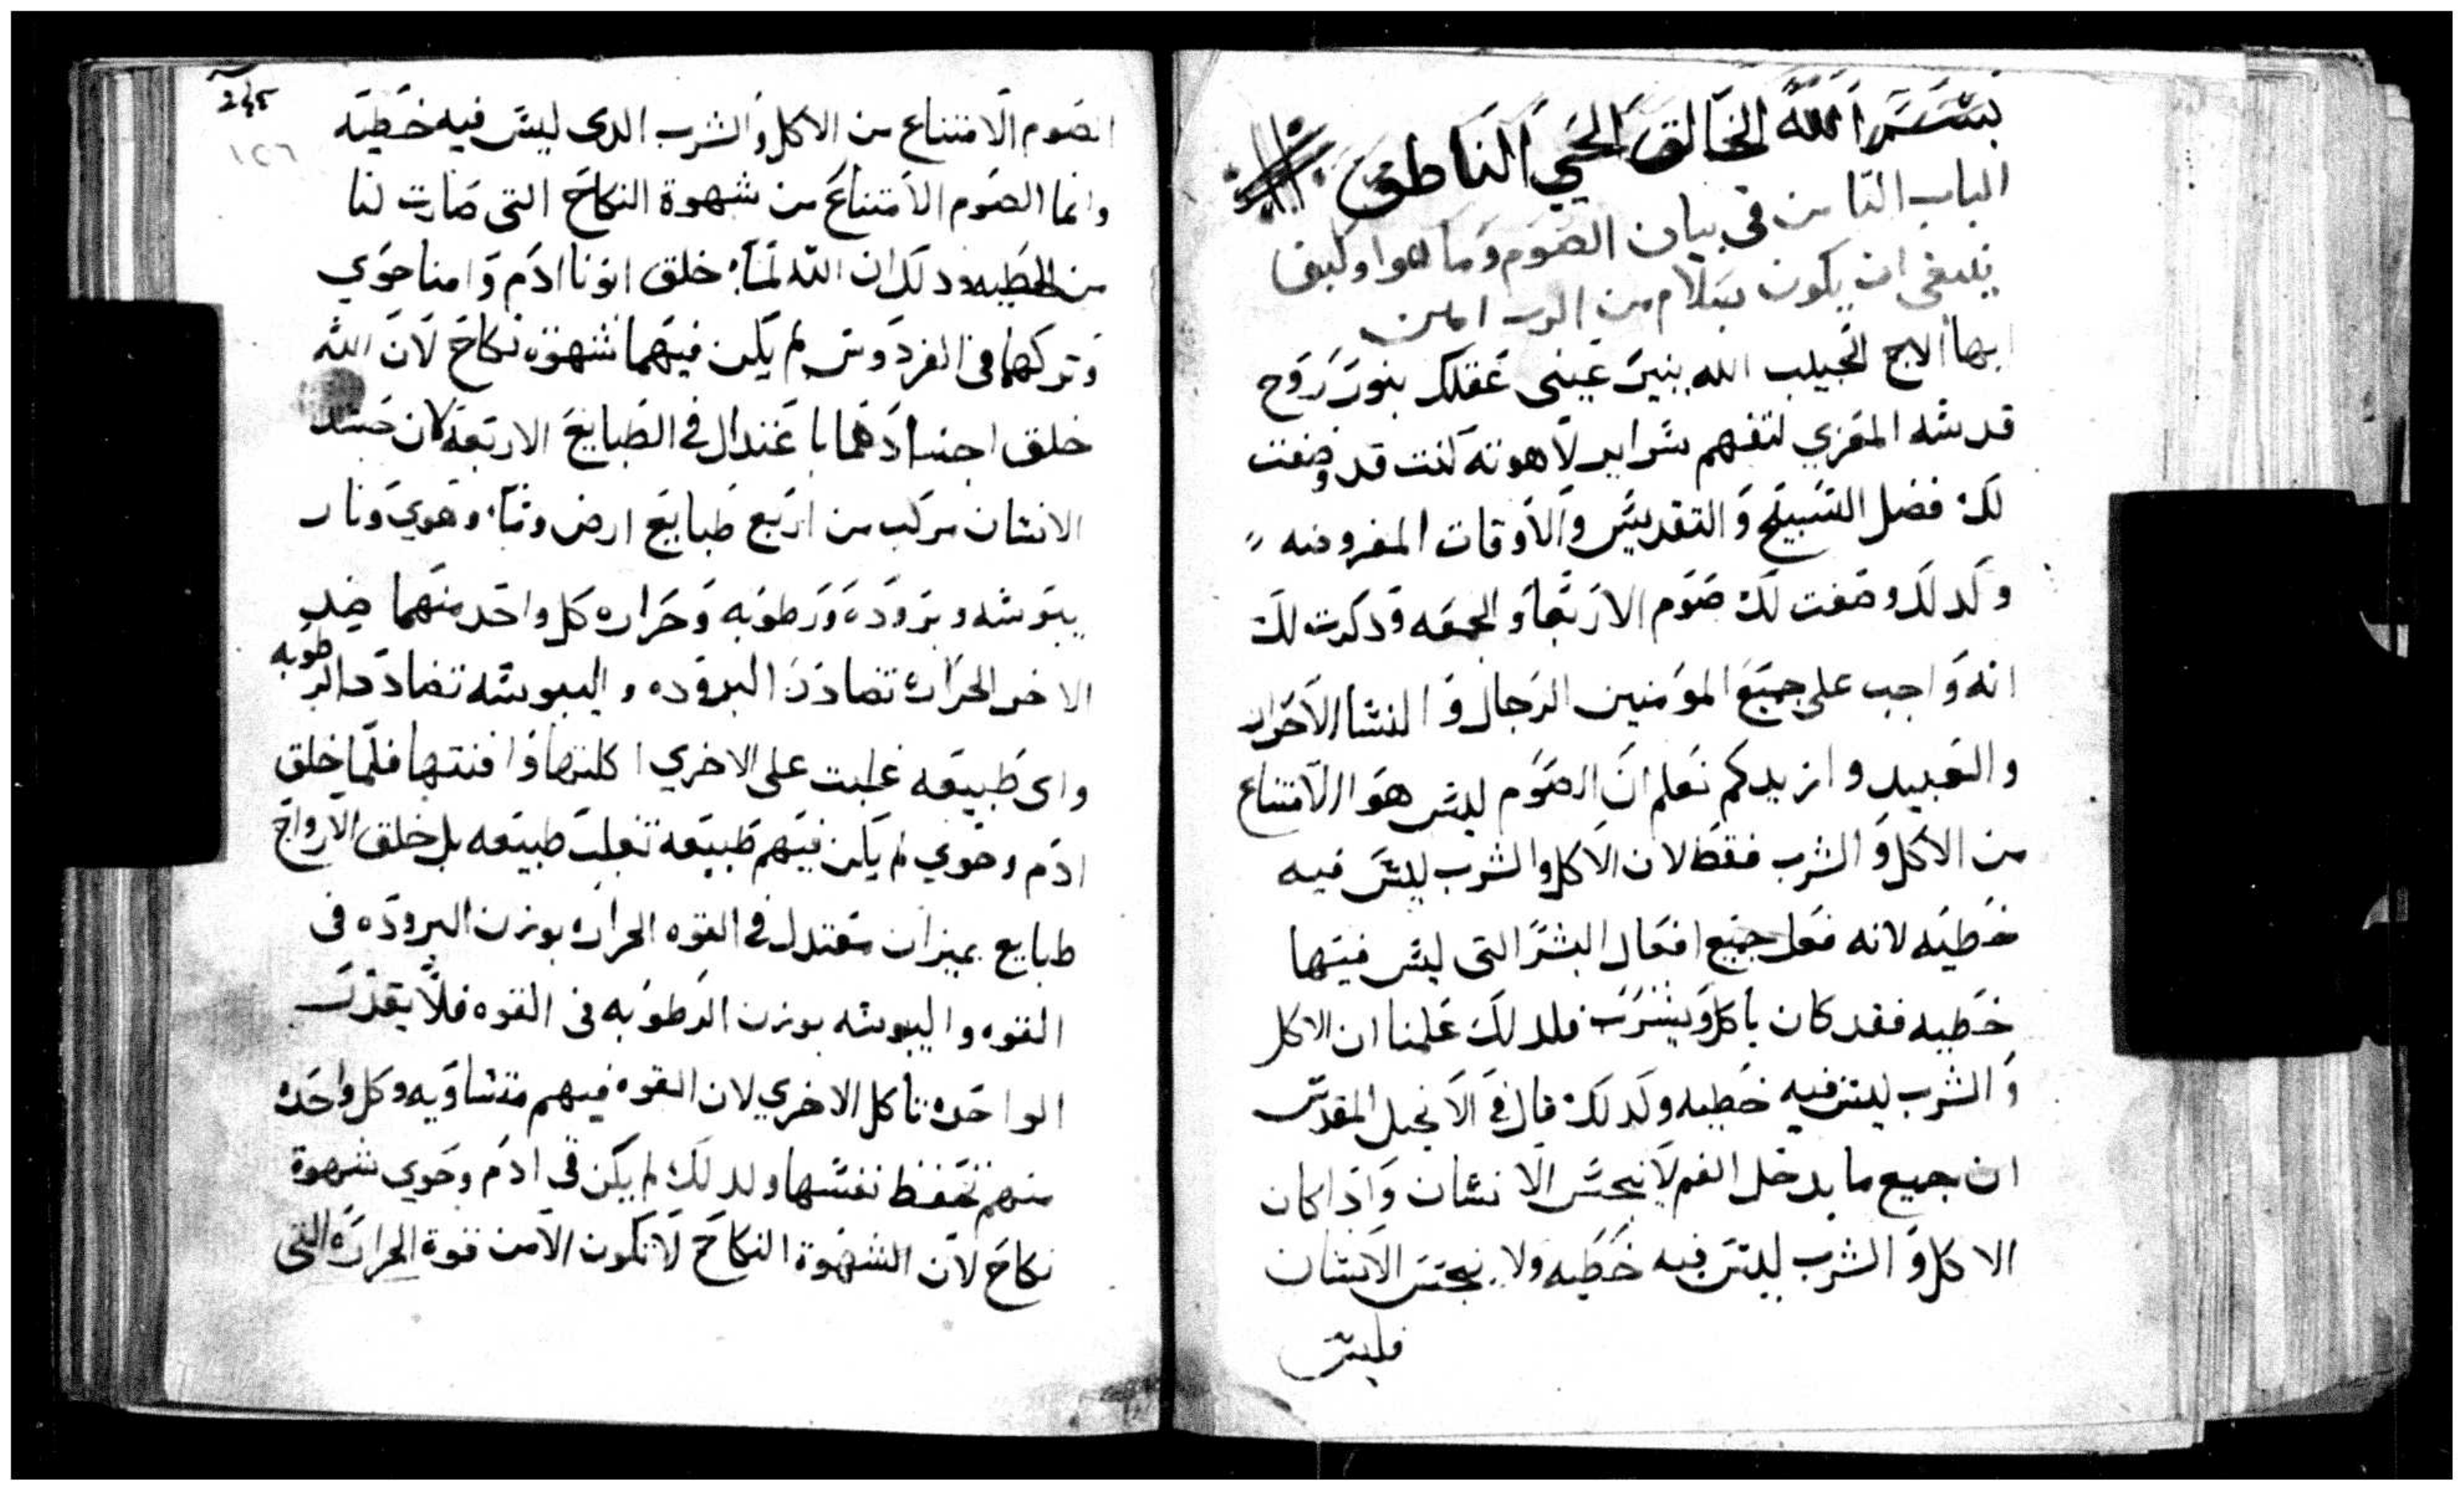 بسم الله الخالق الحي الناطق
الباب الثامن في بيان الصوم وما هوا وكيف
ينبغي ان يكون بسلام من الرب امين
ايها الاخ الحبيب الله ينير عيني عقلك بنور روح
قدسه المعزي لتفهم سراير لاهوته كنت قد وضعت
لك فضل التسبيح والتقديس والاوقات المفروضه
وكدلك وضعت لك صوم الاربعا والجمعه ودكرت لك
انه واجب على جميع المومنين الرجال والنسا الاحرار
والعبيد وازيدكم نعلم ان الصوم ليس هو الامتناع
من الاكل والشرب فقط لان الاكل والشرب ليس فيه
خطيه لانه فعل جميع افعال البشر التى ليس فيها
خطيه فقد كان ياكل ويشرب فلدلك علمنا ان الاكل
والشرب ليس فيه خطيه ولدلك قال في الانجيل المقدس
ان جميع ما يدخل الفم لا ينجس الانسان واذا كان
الاكل والشرب ليس فيه خطيه ولا ينجس الانسان
فليس
١٢٦
الصوم الامتناع من الاكل والشرب الدى ليس فيه خطيه
وانما الصوم الامتناع من شهوة النكاح التى صارت لنا
من الخطيه ودلك ان الله لما خلق ابونا ادم وامنا حوي
وتركهما فى الفردوس لم يكن فيهما شهوة نكاح لان الله
خلق اجسادهما باعتدال في الطبايع الاربعه لان جسد
الانسان مركب من اربع طبايع ارض وما وهوي ونار
يبوسه وبروده ورطوبه وحراره كل واحد منهما ضد
الاخر الحراره تضادد البروده واليبوسه تضادد الرطوبه
واى طبيعه غلبت على الاخري اكلتها وافنتها فلما خلق
ادم وحوي لم يكن فيهم طبيعه تغلب طبيعه بل خلق الارواح
طبايع بميزان معتدل في القوه الحراره بوزن البروده فى
القوه واليبوسه بوزن الرطوبه فى القوه فلا يقدر
الواحده تاكل الاخري لان القوه فيهم متساويه وكل واحده
منهم تحفظ نفسها ولدلك لم يكن فى ادم وحوي شهوة
نكاح لان الشهوة النكاح لا تكون الا من قوة الحراره التى